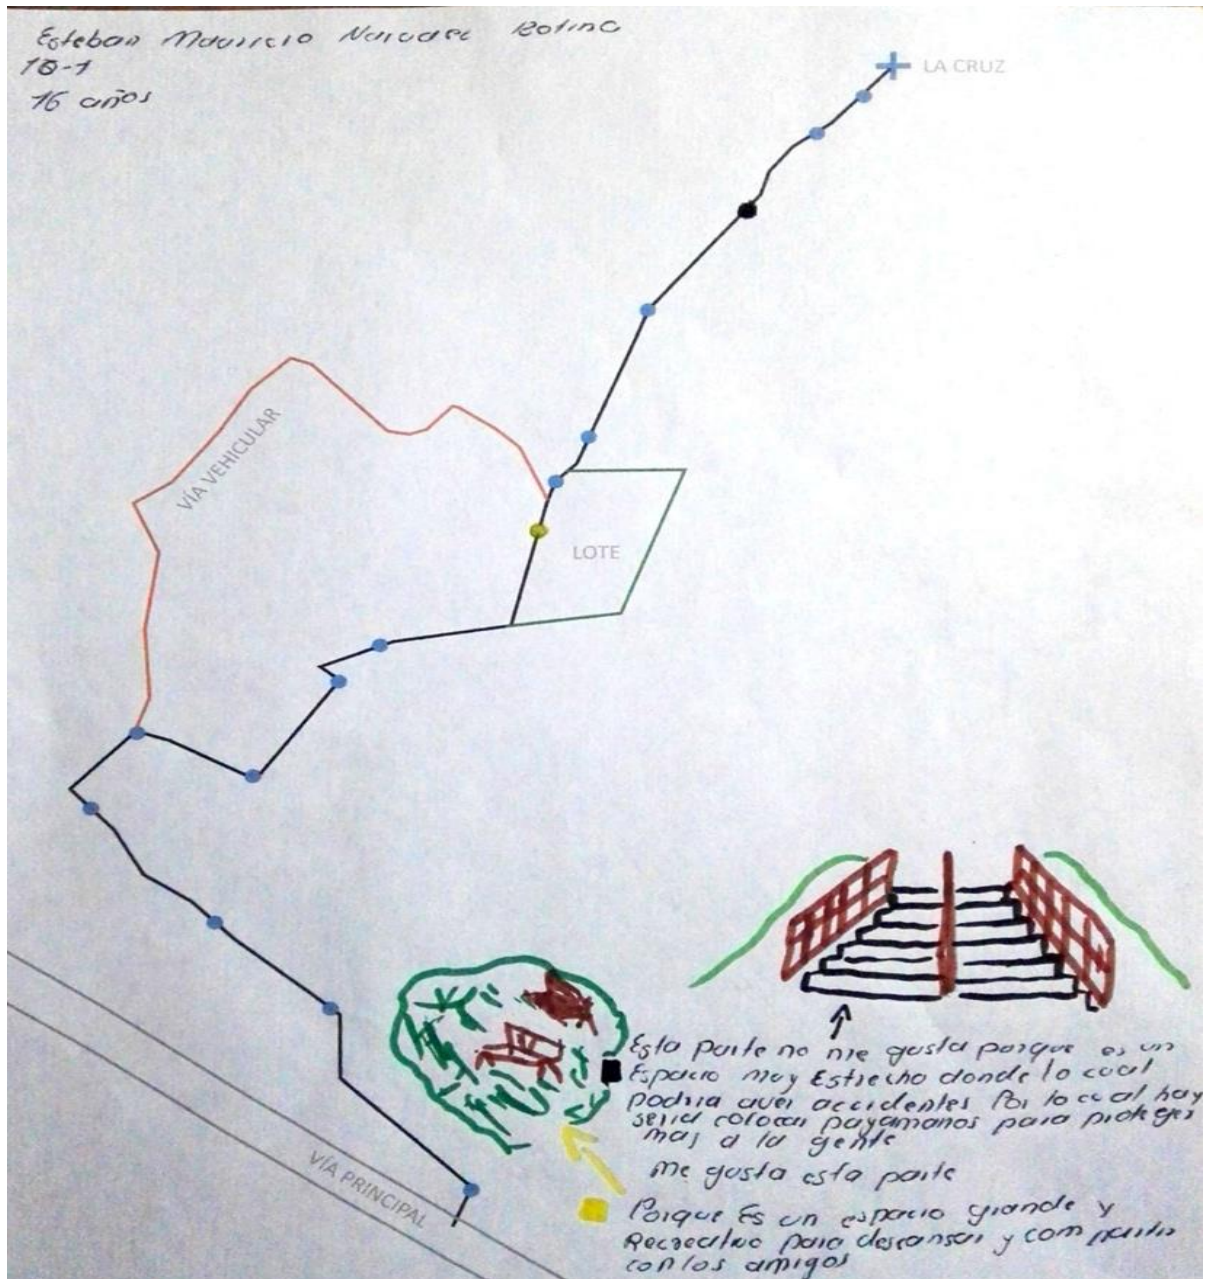 Esteban Mauricio
10-1
16 años
LA CRUZ
VÍA VEHICULAR
LOTE
Esta parte no me gusta porque es un
Espacio muy Estrecho donde lo cual
podria aver accidentes Por lo cual hay
seria colocar pasamanos para proteger
mas a la gente
me gusta esta parte
Porque Es un espacio grande y
Recreativo para descansar y compartir
con los amigos
VÍA PRINCIPAL